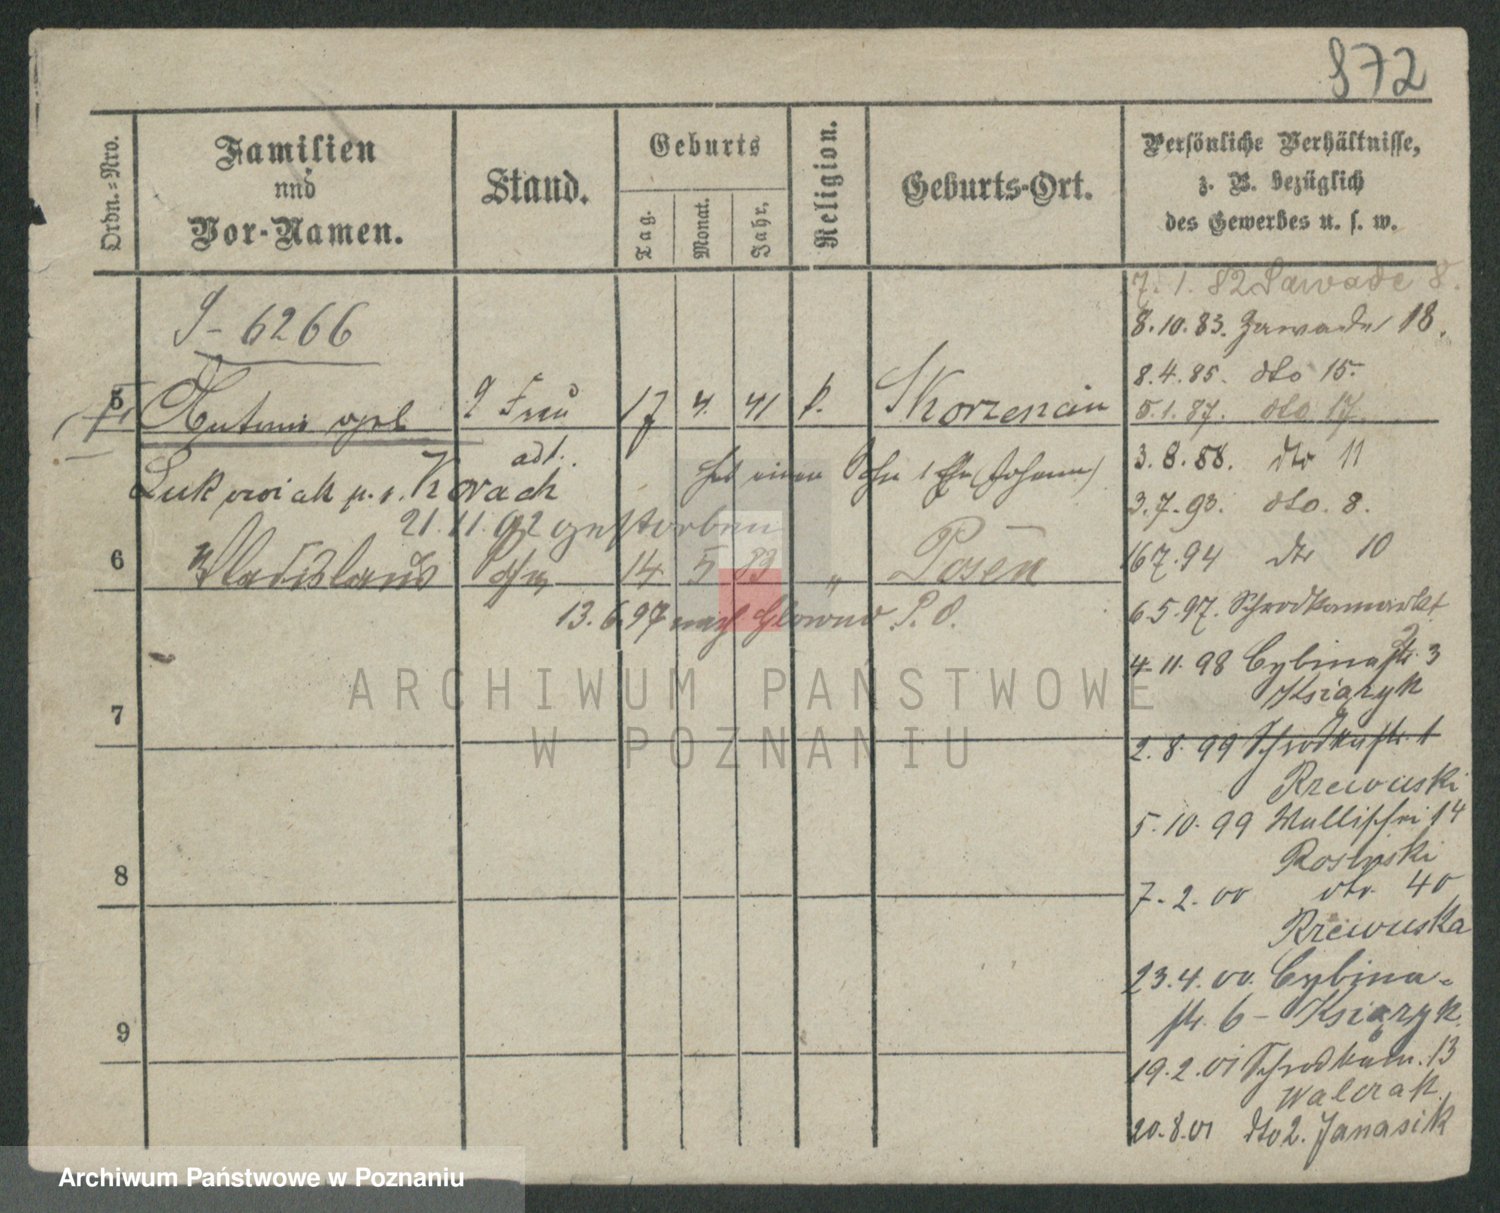 872
Ordn.=Nro.
Familien
und
Vor-Namen.
Stand.
Geburts
Tag.
Monat.
Jahr.
Religion.
Geburts-Ort.
Persönliche Verhältnisse,
z. B. bezüglich
des Gewerbes u. s. w.
7. 1. 82 Sawade 8.
J-6266
8.10.83. Zawade 18.
8.4.85. dto 15.
5 2 Frau 17 4. 41 k. Skorzencin
5.1.87. dto 17.
adt. 3.8.88. dto 11
Kovach einen Sohn (Johann)
3.7.93. dto. 8.
21.11.92 gestorben
6 Wladislaus Sohn 14 5 83 " Posen
16 7.94 dto 10
13.6.97 nach Glowno P. O.
6.5.97. Schrodkamarkt
2
4.11.98 Cybinastr. 3
Książyk
7
2.8.99 Schrodkastr. 1
Rzewuski
5.10.99 Wallischei 14
Rosinski
8
7.2.00 dto. 40
Rzewuska
23.4.00. Cybina-
str. 6 - Książyk.
9
19.2.01 Schrodkam. 13
Walczak
20.8.01 dto 2. Janasik
ARCHIWUM PAŃSTWOWE
W POZNANIU
Archiwum Państwowe w Poznaniu